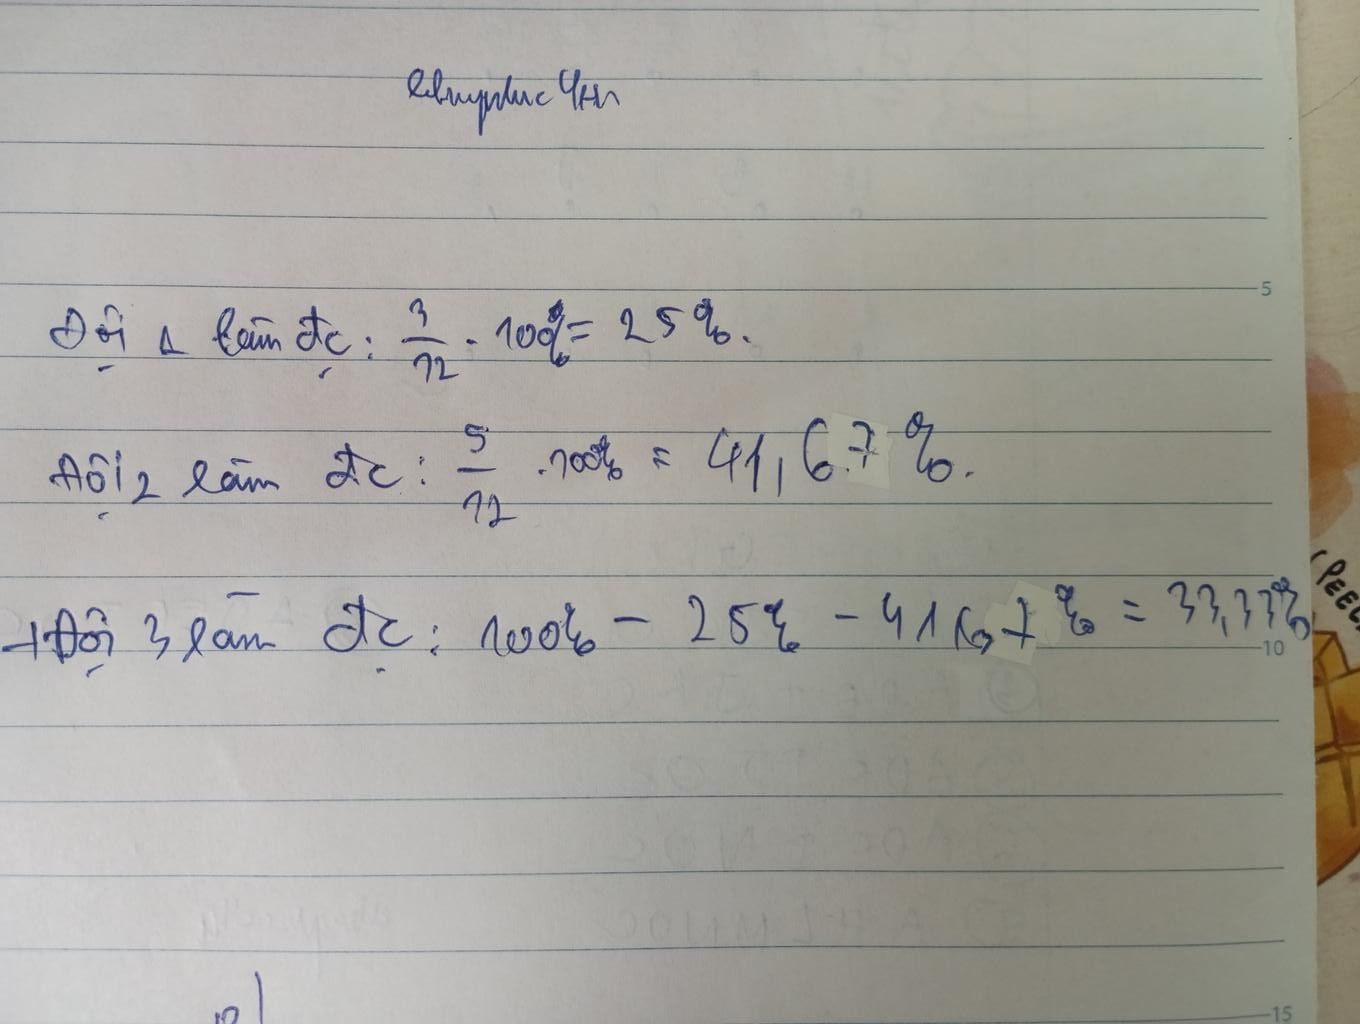 5
Đội 1 làm đc : 3/12 . 100% = 25%.
Đội 2 làm đc : 5/12 .100% = 41,67%.
→ Đội 3 làm đc : 100% - 25% - 41,67% = 33,33%
(PEEL
10
15